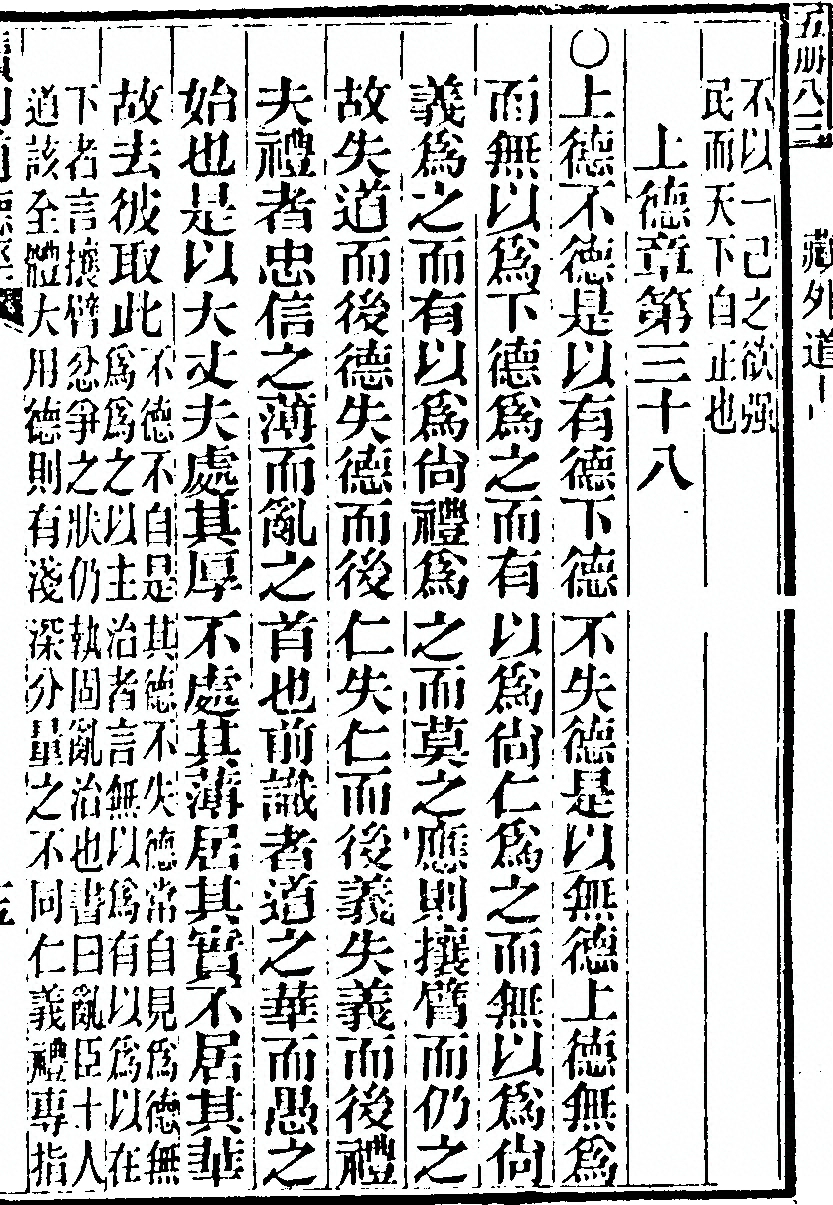 五册八三
藏外道
不以一己之欲强
民而天下自正也
上德章第三十八
○上德不德是以有德下德不失德是以無德上德無爲
而無以爲下德爲之而有以爲尙仁爲之而無以爲尙
義爲之而有以爲尙禮爲之而莫之應則攘臂而仍之
故失道而後德失德而後仁失仁而後義失義而後禮
夫禮者忠信之薄而亂之首也前識者道之華而愚之
始也是以大丈夫處其厚不處其薄居其實不居其華
故去彼取此
不德不自是其德不失德常自見爲德無
爲爲之以主治者言無以爲有以爲以在
下者言攘臂忿爭之狀仍執固亂治也書曰亂臣十人
道該全體大用德則有淺深分量之不同仁義禮專指
五